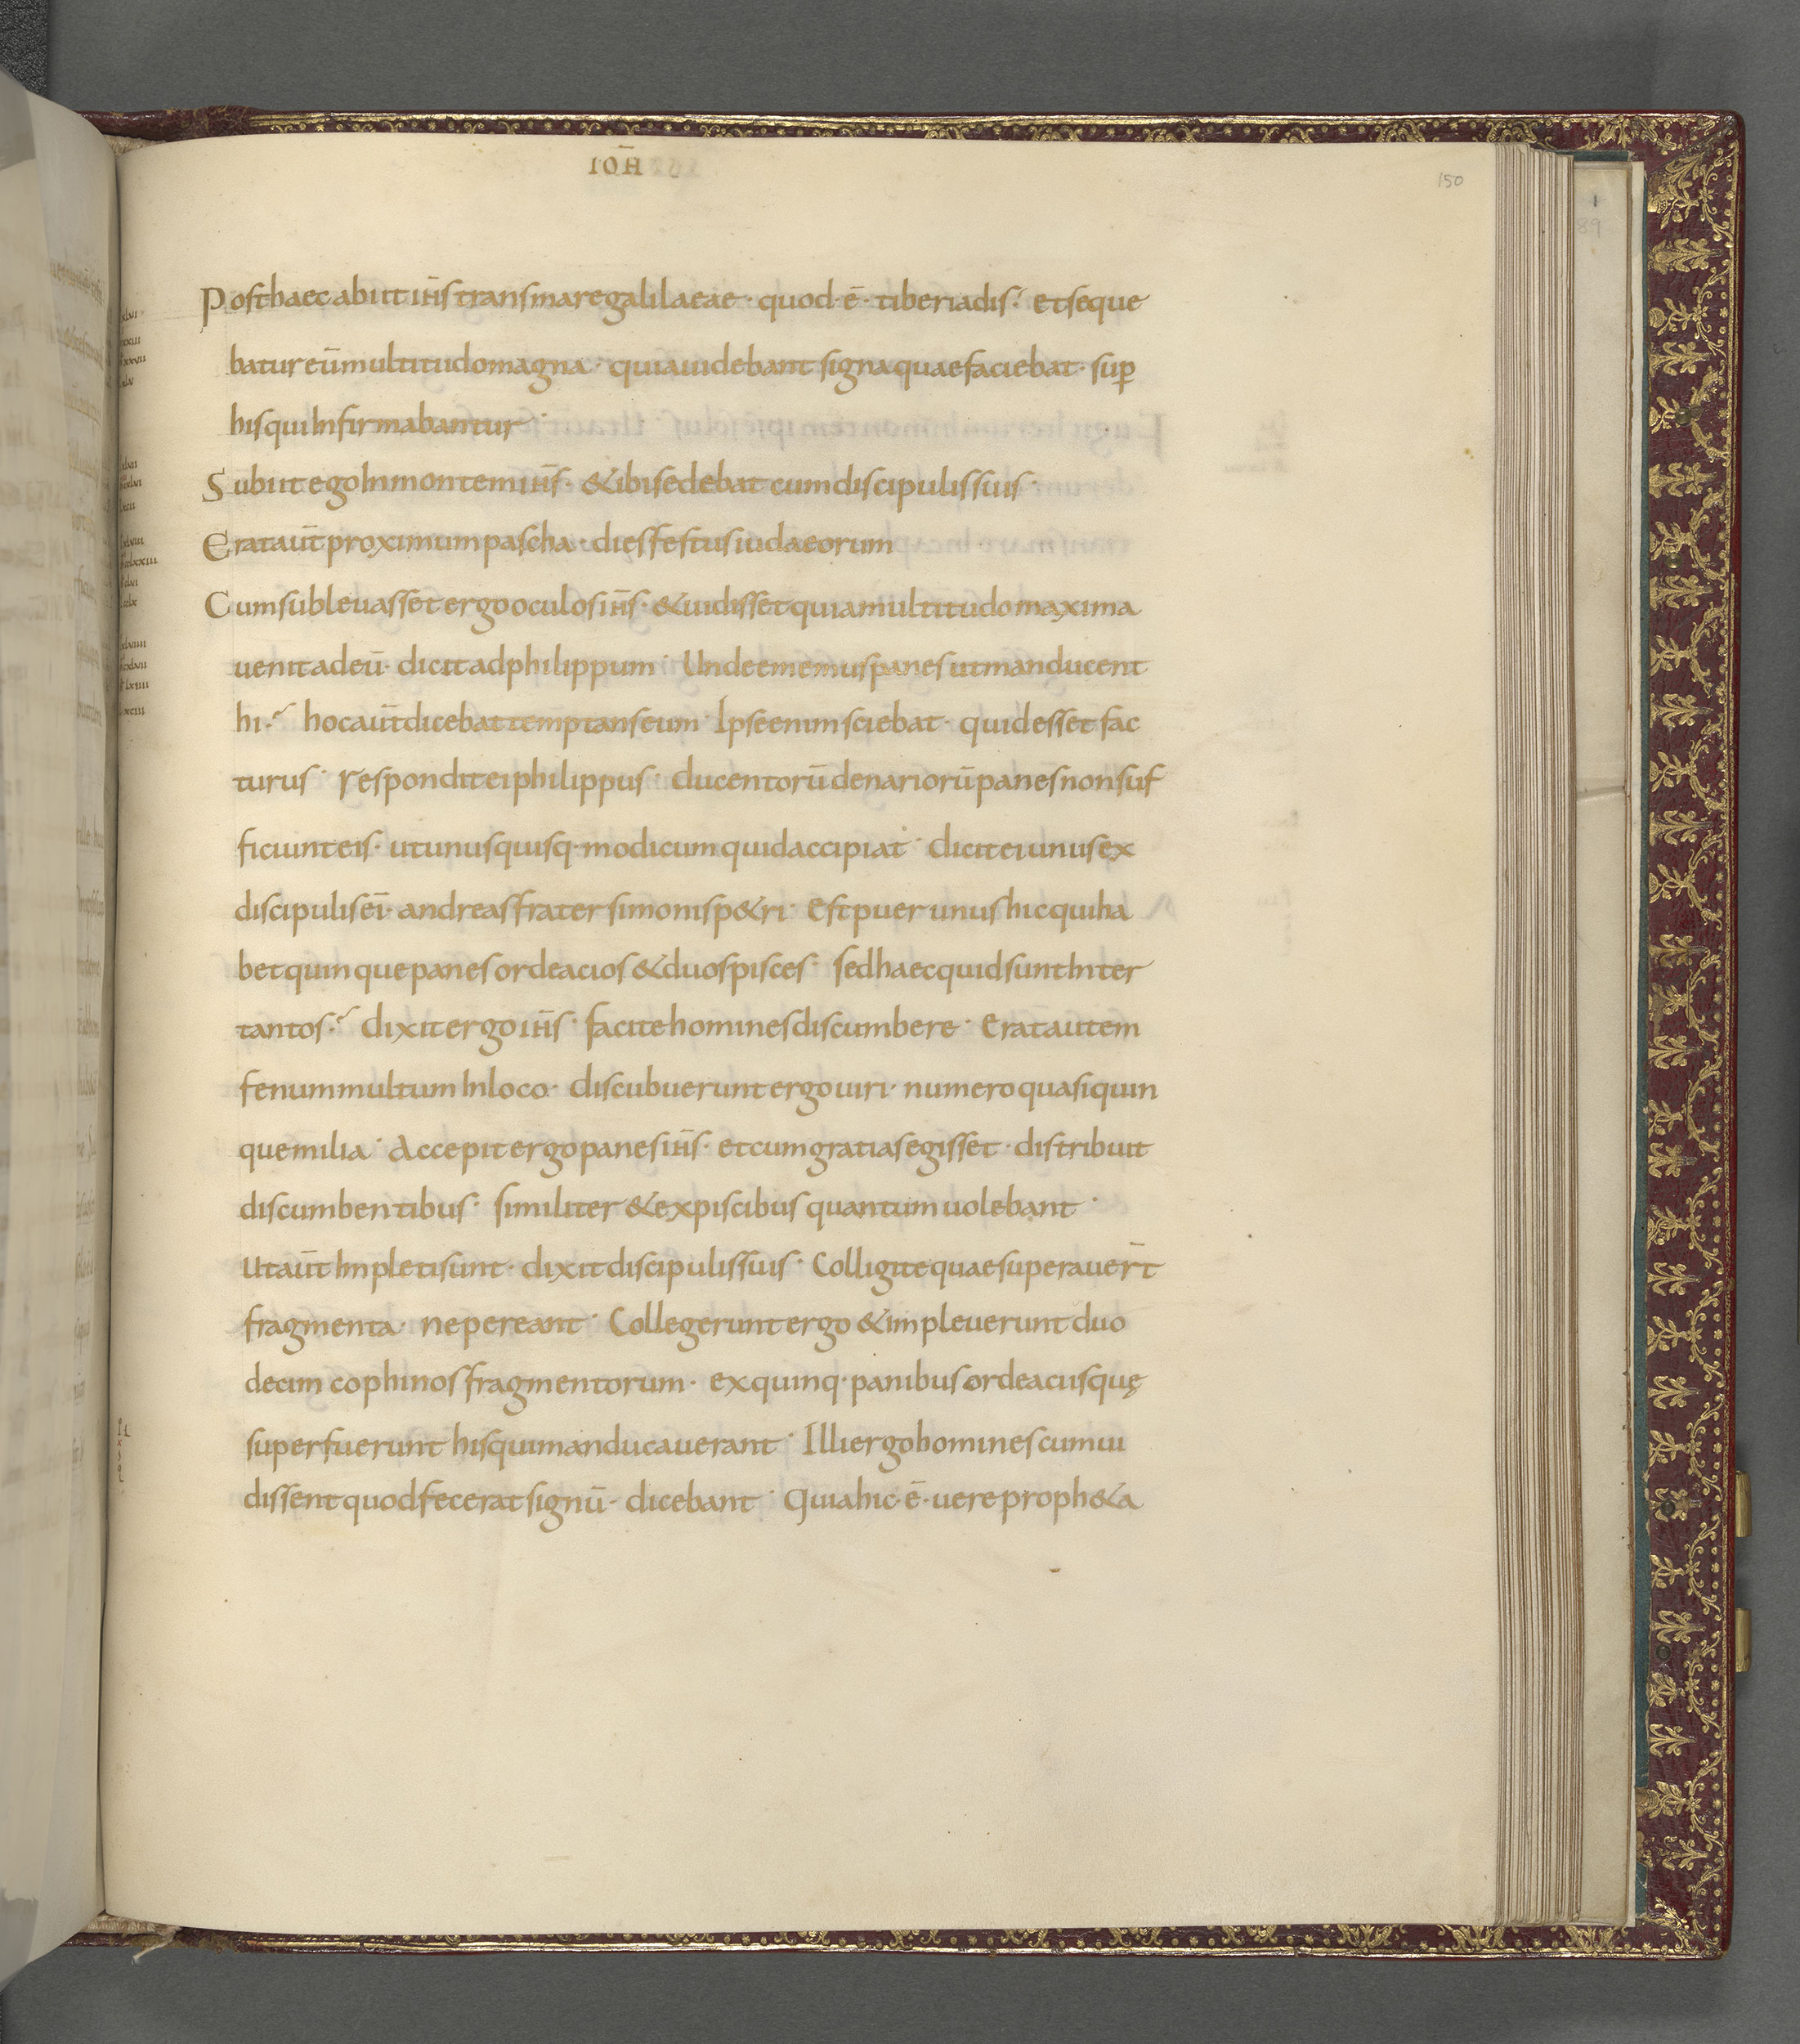 IOH̄
150
Post haec abiit ih̄s trans mare galilaeae · quod · ē · tiberiadis · et seque
batur eū multitudo magna · quia uidebant signa quae faciebat · sup̄
his qui infirmabantur ·
Subiit ego in montem ih̄s · & ibi sedebat cum discipulis suis ·
Erat aūt proximum pascha · dies festus iudaeorum
Cum subleuasset ergo oculos ih̄s · & uidisset quia multitudo maxima
uenit ad eū · dicit ad philippum · Unde ememus panes ut manducent
hi · hoc aūt dicebat temptans eum · Ipse enim sciebat · quid esset fac
turus · respondit ei philippus · ducentorū denariorū panes non suf
ficiunt eis · ut unusquisq · modicum quid accipiat · dicit ei unus ex
discipulis eī · andreas frater simonis p&ri · Est puer unus hic qui ha
bet quinque panes ordeacios & duos pisces · sed haec quid sunt inter
tantos · dixit ergo ih̄s · facite homines discumbere · Erat autem
fenum multum in loco · discubuerunt ergo uiri · numero quasi quin
que milia · Accepit ergo panes ih̄s · et cum gratias egisset · distribuit
discumbentibus · similiter & ex piscibus quantum uolebant ·
Ut aūt impleti sunt · dixit discipulis suis · Colligite quae superauer̄t
fragmenta · ne pereant · Collegerunt ergo & impleuerunt duo
decim cophinos fragmentorum · ex quinq · panibus ordeaciis quę
superfuerunt his qui manducauerant · Illi ergo homines cum ui
dissent quod fecerat signū · dicebant · Quia hic · ē · uere proph&a